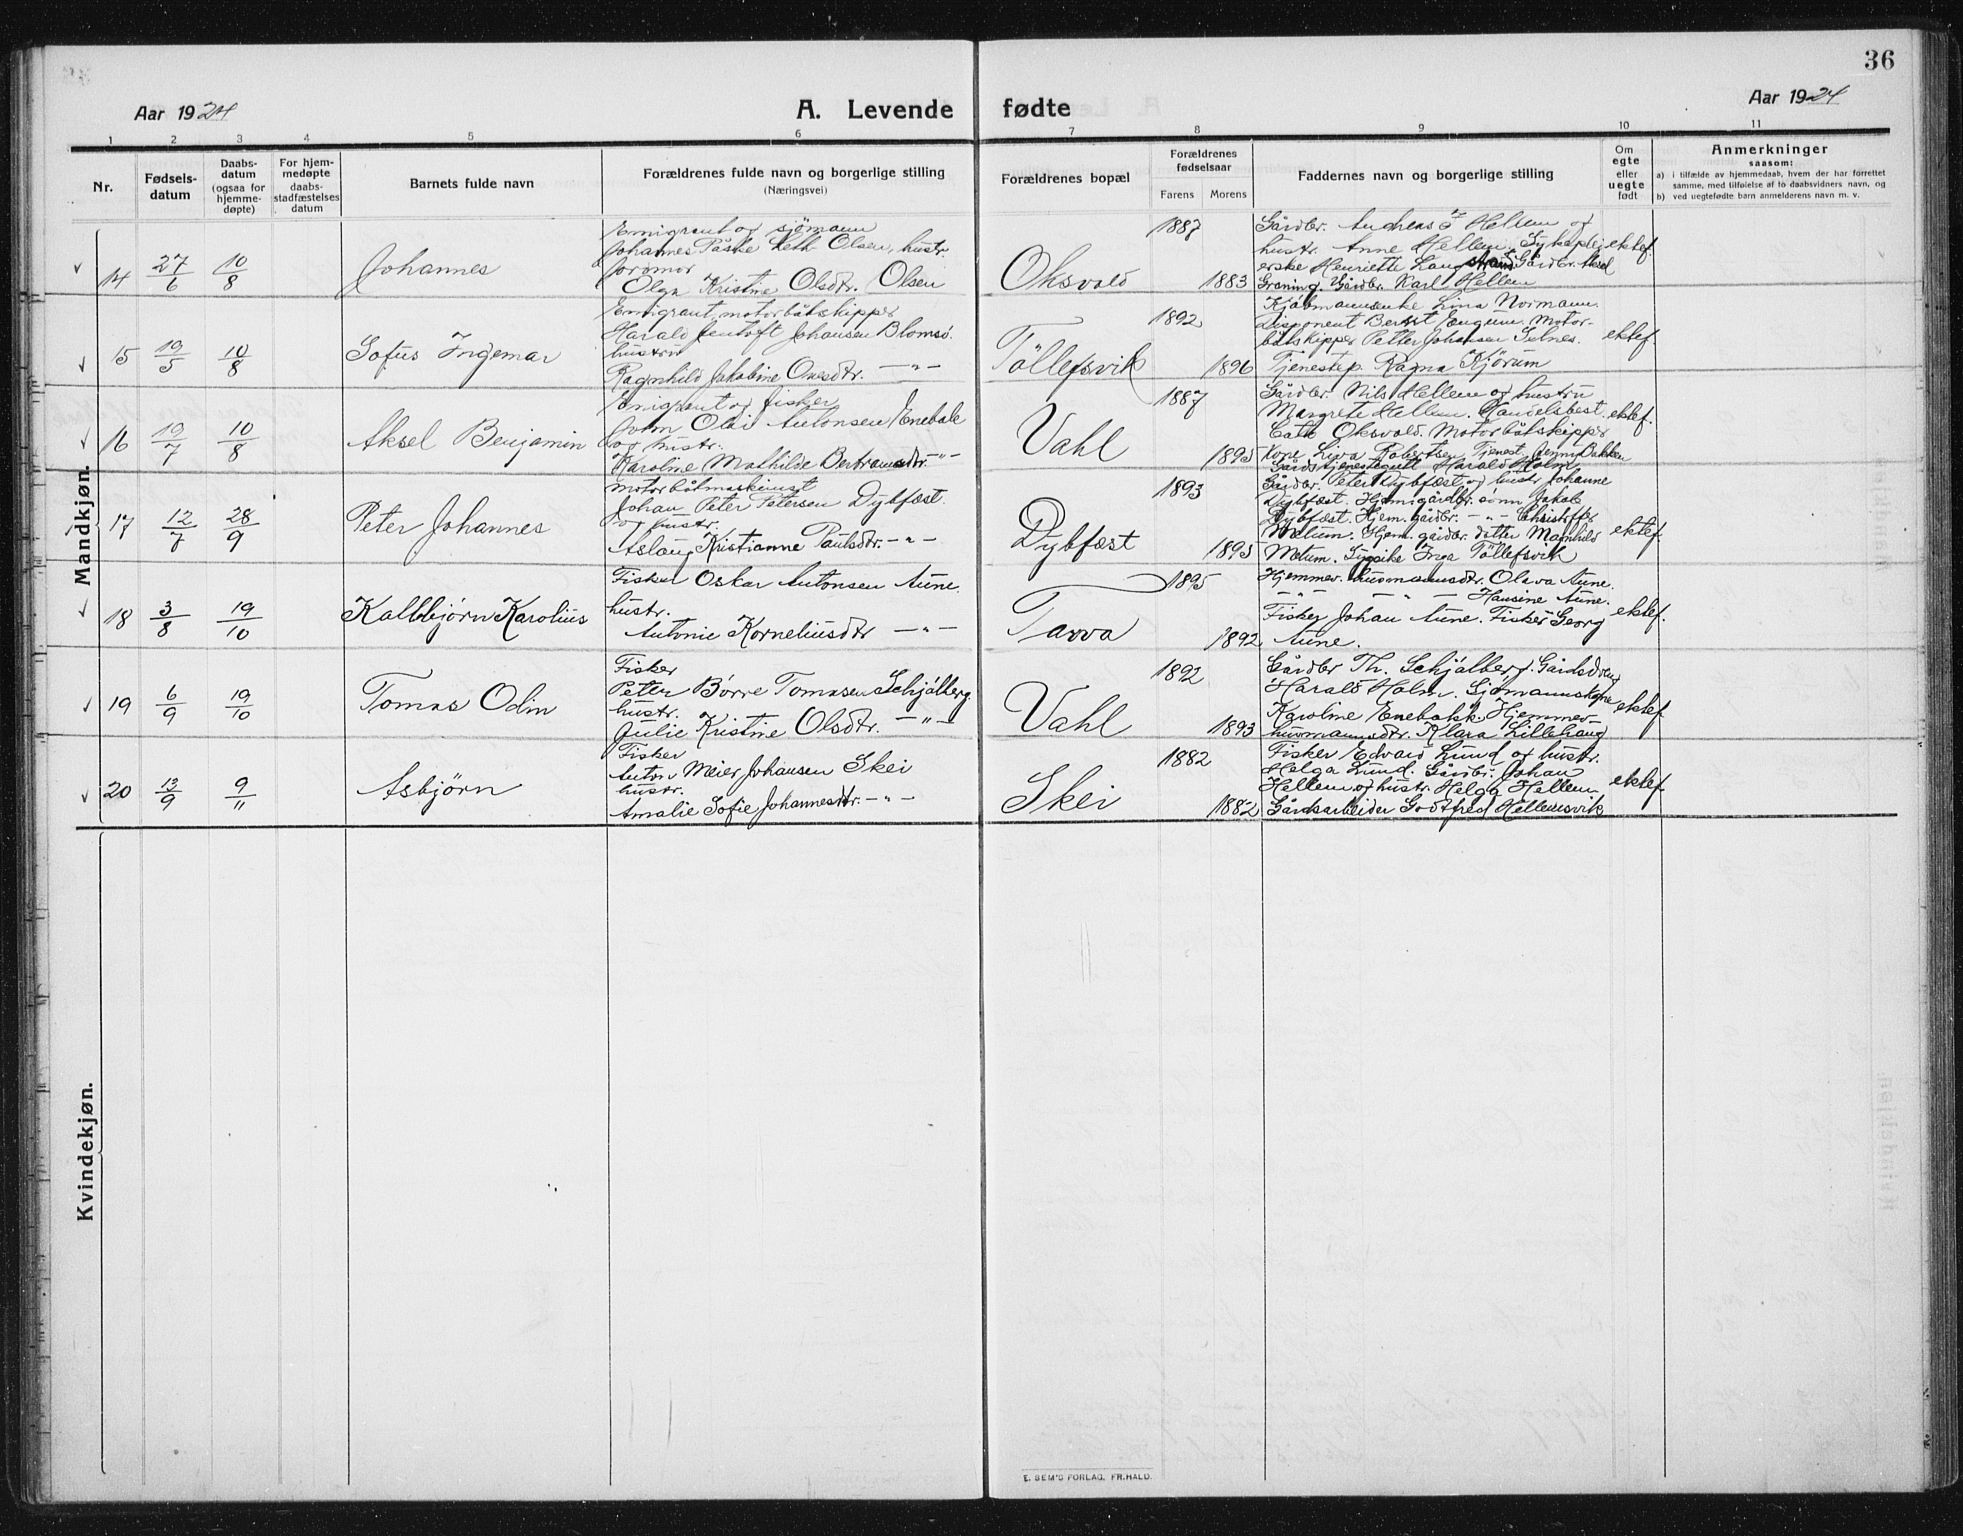 36
Aar 1924
A. Levende fødte
Aar 1924
1 2 3 4 5 6 7 8 9 10 11
Nr.
Fødsels-
datum
Daabs-
datum
(ogsaa for
hjemme-
døpte)
For hjem-
medøpte
daabs-
stadfæstelses
datum
Barnets fulde navn
Forældrenes fulde navn og borgerlige stilling
(Næringsvei)
Forældrenes bopæl
Forældrenes
fødselsaar
Farens Morens
Faddernes navn og borgerlige stilling
Om
egte
eller
uegte
født
Anmerkninger
saasom:
a) i tilfælde av hjemmedaab, hvem der har forrettet
samme, med tilføielse af to daabsvidners navn, og
b) ved uegtefødte barn anmelderens navn m. v.
Mandkjøn.
14 27/6 10/8 Johannes
Emigrant og sjømann
Johannes Påske Olsen, hustr.
Olga Kristine Olsdtr. Olsen
Oksvold
1887
1883
Gårdbr. Andreas Hellem og
hustr. Anne Hellem. Sykeplei-
erske Henriette Gårdbr. Aksel
Graning. Gårdbr. Karl Hellem
ektef.
15 19/5 10/8 Sofus Ingemar
Emigrant, motorbåtskipper
Harald Jentoft Johansen Blomsø
hustru
Ragnhild Jakobine Onesdtr. -"-
Tøllefsvik
1892
1896
Kjøbmannsenke Lina Normann.
Disponent Motor-
båtskipper Petter Johansen Selnes.
Tjenestep. Ragna Kjørum
ektef.
16 19/7 10/8 Aksel Benjamin
Emigrant og fisker
Olai Antonsen Enebakk
og hustr.
Karoline Mathilde Bertramsdtr. -"-
Vahl
1887
1895
Gårdbr. Nils Hellem og hustru
Margrete Hellem. Handelsbest.
Cath. Oksvold. Motorbåtskipper
Kone Liva Robertsen Tjenest. Jenny Bakken
Gårdstjenestegutt Harald Holm
ektef.
17 12/7 28/9 Peter Johannes
Motorbåtmaskinist
Johan Peter Petersen Dybfæst
og hustr.
Aslaug Kristianne Paulsdtr. -"-
Dybfæst
1893
1895
Gårdbr. Peter Dybfæst og hustr. Johanne
Dybfæst. Hjem. gårdbr. sønn Jakob
Dybfæst. Hjem. gårdbr. -"- Christoffer
Melum. Hjem. gårdbr. datter Magnhild
Melum. Sypike Inga Tøllefsvik
ektef.
18 3/8 19/10 Kallbjørn Karolius
Fisker Oskar Antonsen Aune.
hustr.
Antonie Korneliusdtr -"-
Tarva
1895
1892
Hjemmev. husmannsdtr. Olava Aune.
-"- -"- Hansine Aune.
Fisker Johan Aune. Fisker Georg
Aune.
ektef.
19 6/9 19/10 Tomas Odin
Fisker
Peter Børre Tomasen Schjølberg.
hustr.
Julie Kristine Olsdtr. -"-
Vahl
1892
1893
Gårdbr Th. Schjølberg. Gårdsdreng
Harald Holm. Sjømannskone
Karoline Enebakk. Hjemmev-
husmannsdtr. Klara Lillehaug
ektef.
20 13/9 9/11 Asbjørn
Fisker
Anton Meier Johansen Skei
hustr.
Amalie Sofie Johannesdtr. -"-
Skei
1882
1882
Fisker Edvard Lund og hustr.
Helga Lund. Gårdbr. Johan
Hellem og hustr. Helga Hellem.
Gårdsarbeider Godtfred Hellemsvik
ektef.
Kvindekjøn.
E. SEM'S FORLAG, FR.HALD.